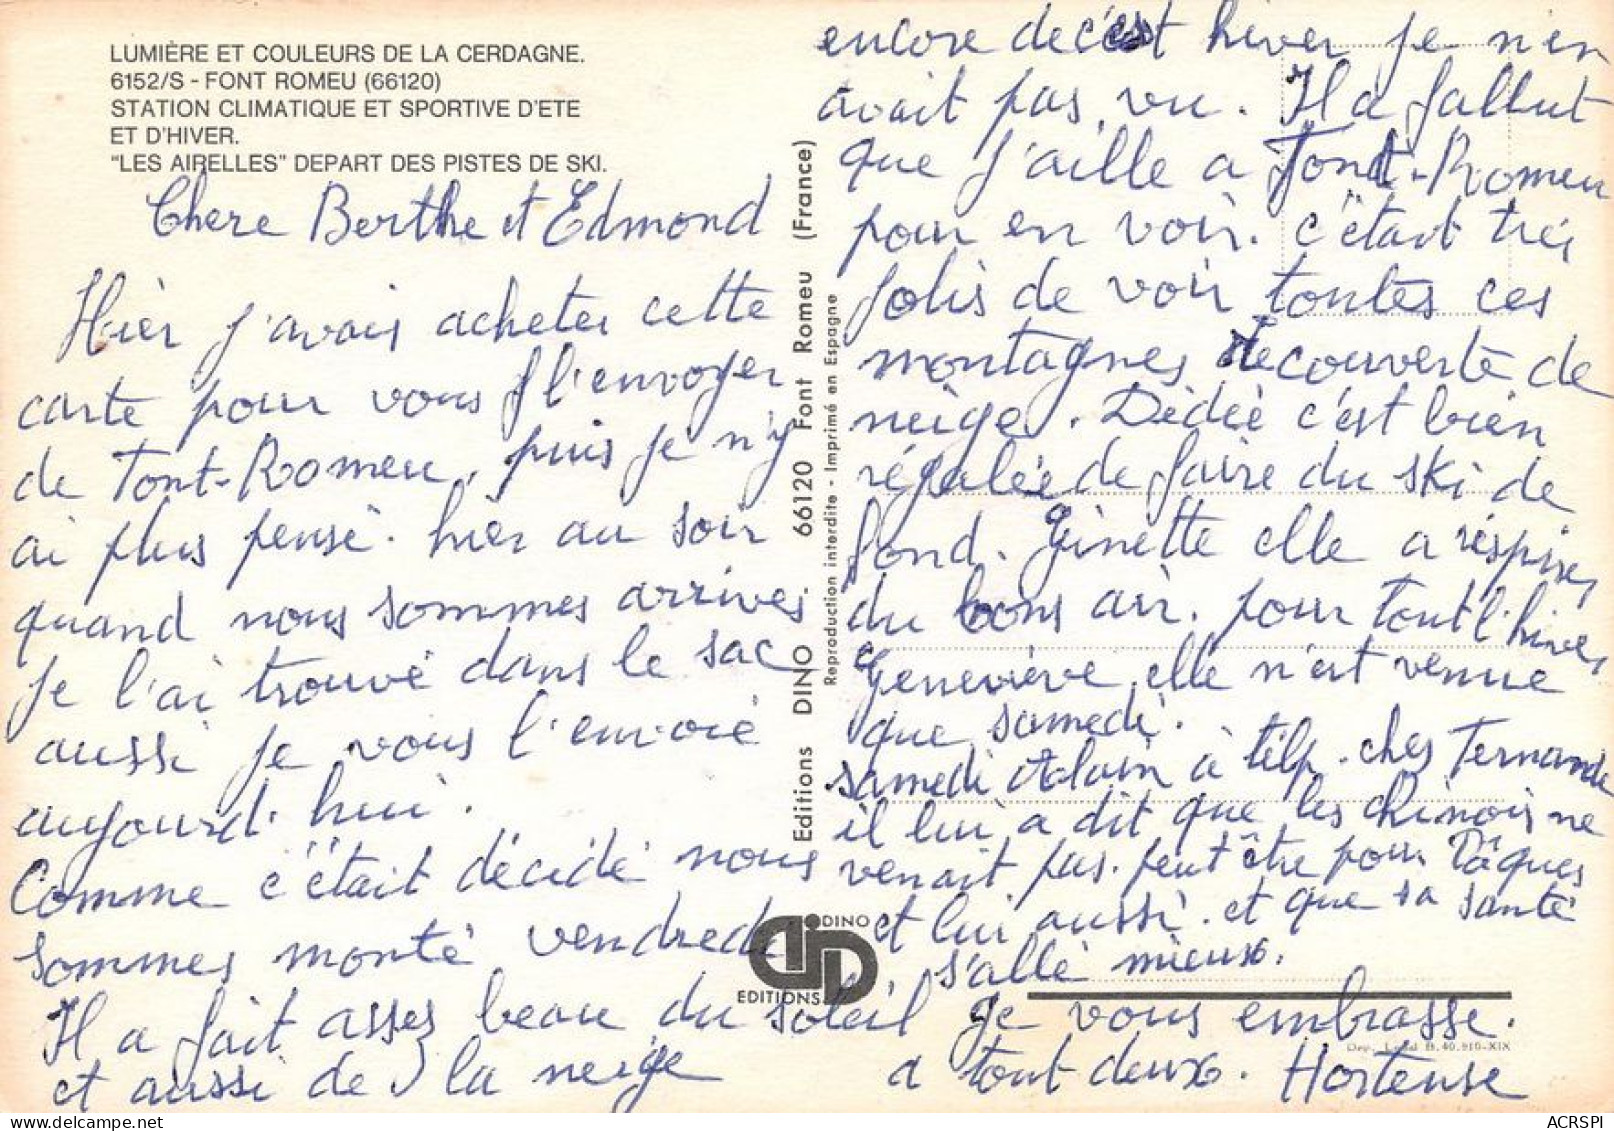 LUMIÈRE ET COULEURS DE LA CERDAGNE.
6152/S - FONT ROMEU (66120)
STATION CLIMATIQUE ET SPORTIVE D'ETE
ET D'HIVER.
"LES AIRELLES" DEPART DES PISTES DE SKI.
Chere Berthe et Edmond
Hièr j'avais acheter cette
carte pour vous l'envoyer
de Font-Romeu, puis je n'y
ai plus pensé. hier au soir
quand nous sommes arrives
je l'ai trouvé dans le sac
aussi je vous l'envoié
aujourd'hui.
Comme c'était décidé nous
sommes monté vendredi
Il a fait asses beau du soleil
et aussi de la neige
Editions DINO 66120 Font Romeu (France)
Reproduction interdite - Imprimé en Espagne
DINO
EDITIONS
encore de cést hiver je n'en
avait pas vu. Il a fallut
que j'aille a Font-Romeu
pour en voir. c'était très
jolis de voir toutes ces
montagnes recouverte de
neige. Dédée c'est bien
régalée de faire du ski de
fond. Ginette elle a réspirer
du bons air. pour tout l'hiver
Geneviève elle n'est venue
que samedi.
samedi Alain à télp. chez Fernande
il lui a dit que les chinois ne
venait pas. peut être pour Pâques
et lui aussi. et que sa santé
s'allé mieux.
Je vous embrasse.
Dep. Legal B. 40.910-XIX
a tout deux. Hortense
ACRSPI